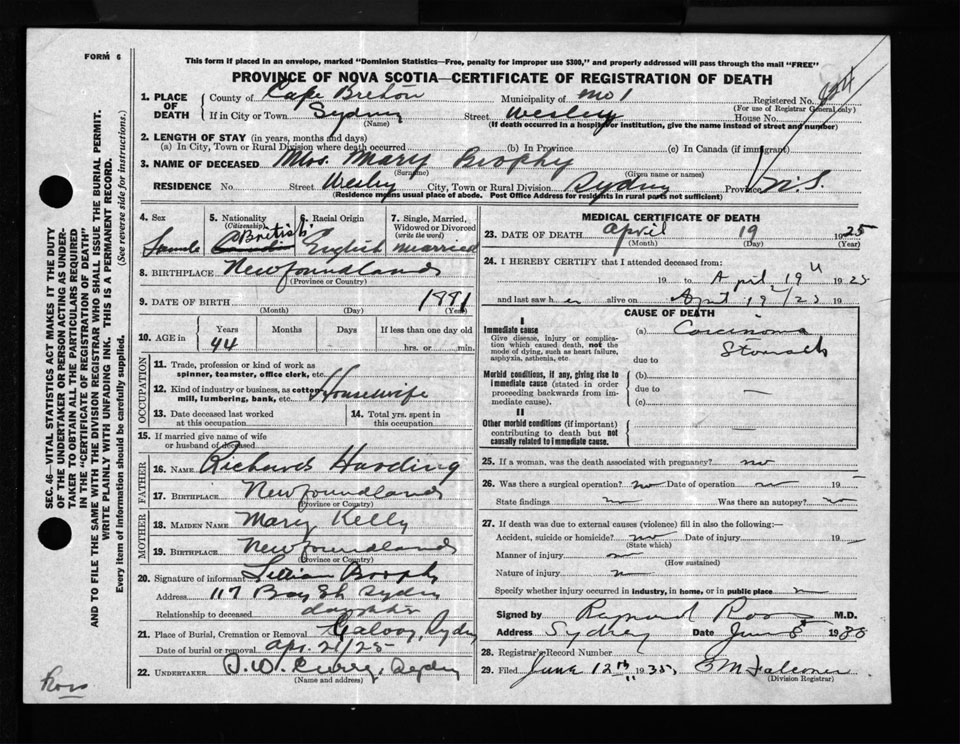 FORM 6
This form if placed in an envelope, marked "Dominion Statistics—Free, penalty for improper use $300," and properly addressed will pass through the mail "FREE"
PROVINCE OF NOVA SCOTIA—CERTIFICATE OF REGISTRATION OF DEATH
1. PLACE OF DEATH
County of Cape Breton Municipality of No 1 Registered No.
(For use of Registrar General only)
If in City or Town Sydney Street Wesley House No.
(Name) (If death occurred in a hospital or institution, give the name instead of street and number)
2. LENGTH OF STAY (in years, months and days)
(a) In City, Town or Rural Division where death occurred (b) In Province (c) In Canada (if immigrant)
3. NAME OF DECEASED Mrs. Mary Brophy
(Surname) (Given name or names)
RESIDENCE No. Street Wesley City, Town or Rural Division Sydney Province N.S.
(Residence means usual place of abode. Post Office Address for residents in rural parts not sufficient)
4. Sex 5. Nationality (Citizenship) 6. Racial Origin 7. Single, Married, Widowed or Divorced (write the word)
British English Married
8. BIRTHPLACE Newfoundland
(Province or Country)
9. DATE OF BIRTH 1881
(Month) (Day) (Year)
10. AGE in Years Months Days If less than one day old
44 hrs. or min.
OCCUPATION
11. Trade, profession or kind of work as spinner, teamster, office clerk, etc.
12. Kind of industry or business, as cotton mill, lumbering, bank, etc. Housewife
13. Date deceased last worked at this occupation 14. Total yrs. spent in this occupation
15. If married give name of wife or husband of deceased
FATHER
16. NAME Richard Harding
17. BIRTHPLACE Newfoundland
(Province or Country)
MOTHER
18. MAIDEN NAME Mary Kelly
19. BIRTHPLACE Newfoundland
(Province or Country)
20. Signature of informant Lillian Brophy
Address 117 Bay St Sydney
Relationship to deceased daughter
21. Place of Burial, Cremation or Removal Sydney
Date of burial or removal Apr. 21/25
22. UNDERTAKER Curry, Sydney
(Name and address)
MEDICAL CERTIFICATE OF DEATH
23. DATE OF DEATH April 19 1925
(Month) (Day) (Year)
24. I HEREBY CERTIFY that I attended deceased from:
19 to April 19th 1925
and last saw her alive on April 19/25 19
CAUSE OF DEATH
I
Immediate cause (a) Carcinoma
Give disease, injury or complication which caused death, not the mode of dying, such as heart failure, asphyxia, asthenia, etc. Stomach
due to
Morbid conditions, if any, giving rise to immediate cause (stated in order proceeding backwards from immediate cause). (b)
due to
(c)
II
Other morbid conditions (if important) contributing to death but not causally related to immediate cause.
25. If a woman, was the death associated with pregnancy? no
26. Was there a surgical operation? no Date of operation 19
State findings Was there an autopsy? no
27. If death was due to external causes (violence) fill in also the following:—
Accident, suicide or homicide? no Date of injury 19
(State which)
Manner of injury
(How sustained)
Nature of injury
Specify whether injury occurred in industry, in home, or in public place
Signed by M.D.
Address Sydney Date June 8
28. Registrar's Record Number
29. Filed June 12th 1935
(Division Registrar)
SEC. 46—VITAL STATISTICS ACT MAKES IT THE DUTY
OF THE UNDERTAKER OR PERSON ACTING AS UNDERTAKER TO OBTAIN ALL THE PARTICULARS REQUIRED
IN THE "CERTIFICATE OF REGISTRATION OF DEATH"
AND TO FILE THE SAME WITH THE DIVISION REGISTRAR WHO SHALL ISSUE THE BURIAL PERMIT.
WRITE PLAINLY WITH UNFADING INK. THIS IS A PERMANENT RECORD.
Every item of information should be carefully supplied. (See reverse side for instructions.)
Ross